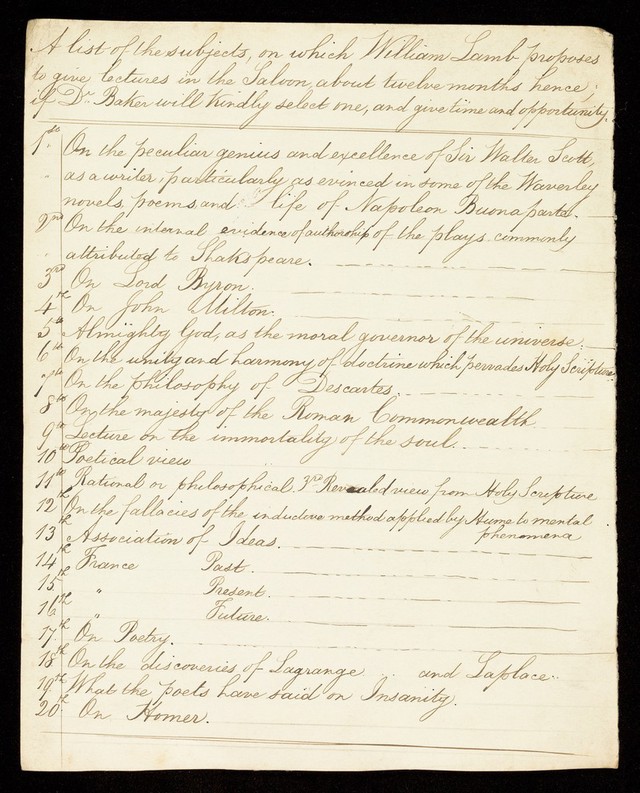 A list of the subjects, on which William Lamb proposes
to give lectures in the Saloon, about twelve months hence,
if Dr Baker will kindly select one, and give time and opportunity.
1st. On the peculiar genius and excellence of Sir Walter Scott,
as a writer, particularly as evinced in some of the Waverley
novels, poems, and life of Napoleon Buonaparte.
2nd On the internal evidence of authorship of the plays commonly
attributed to Shakspeare.
3rd On Lord Byron.
4th On John Milton.
5th Almighty God, as the moral governor of the universe.
6th On the unity and harmony of doctrine which pervades Holy Scripture.
7th On the philosophy of Descartes
8th On the majesty of the Roman Commonwealth
9th Lecture on the immortality of the soul.
10th Poetical view
11th Rational or philosophical, 3rd Revealed view from Holy Scripture
12th On the fallacies of the inductive method applied by Hume to mental
phenomena
13th Association of Ideas.
14th France Past.
15th " Present.
16th " Future.
17th On Poetry.
18th On the discoveries of Lagrange and Laplace.
19th What the poets have said on Insanity.
20th On Homer.